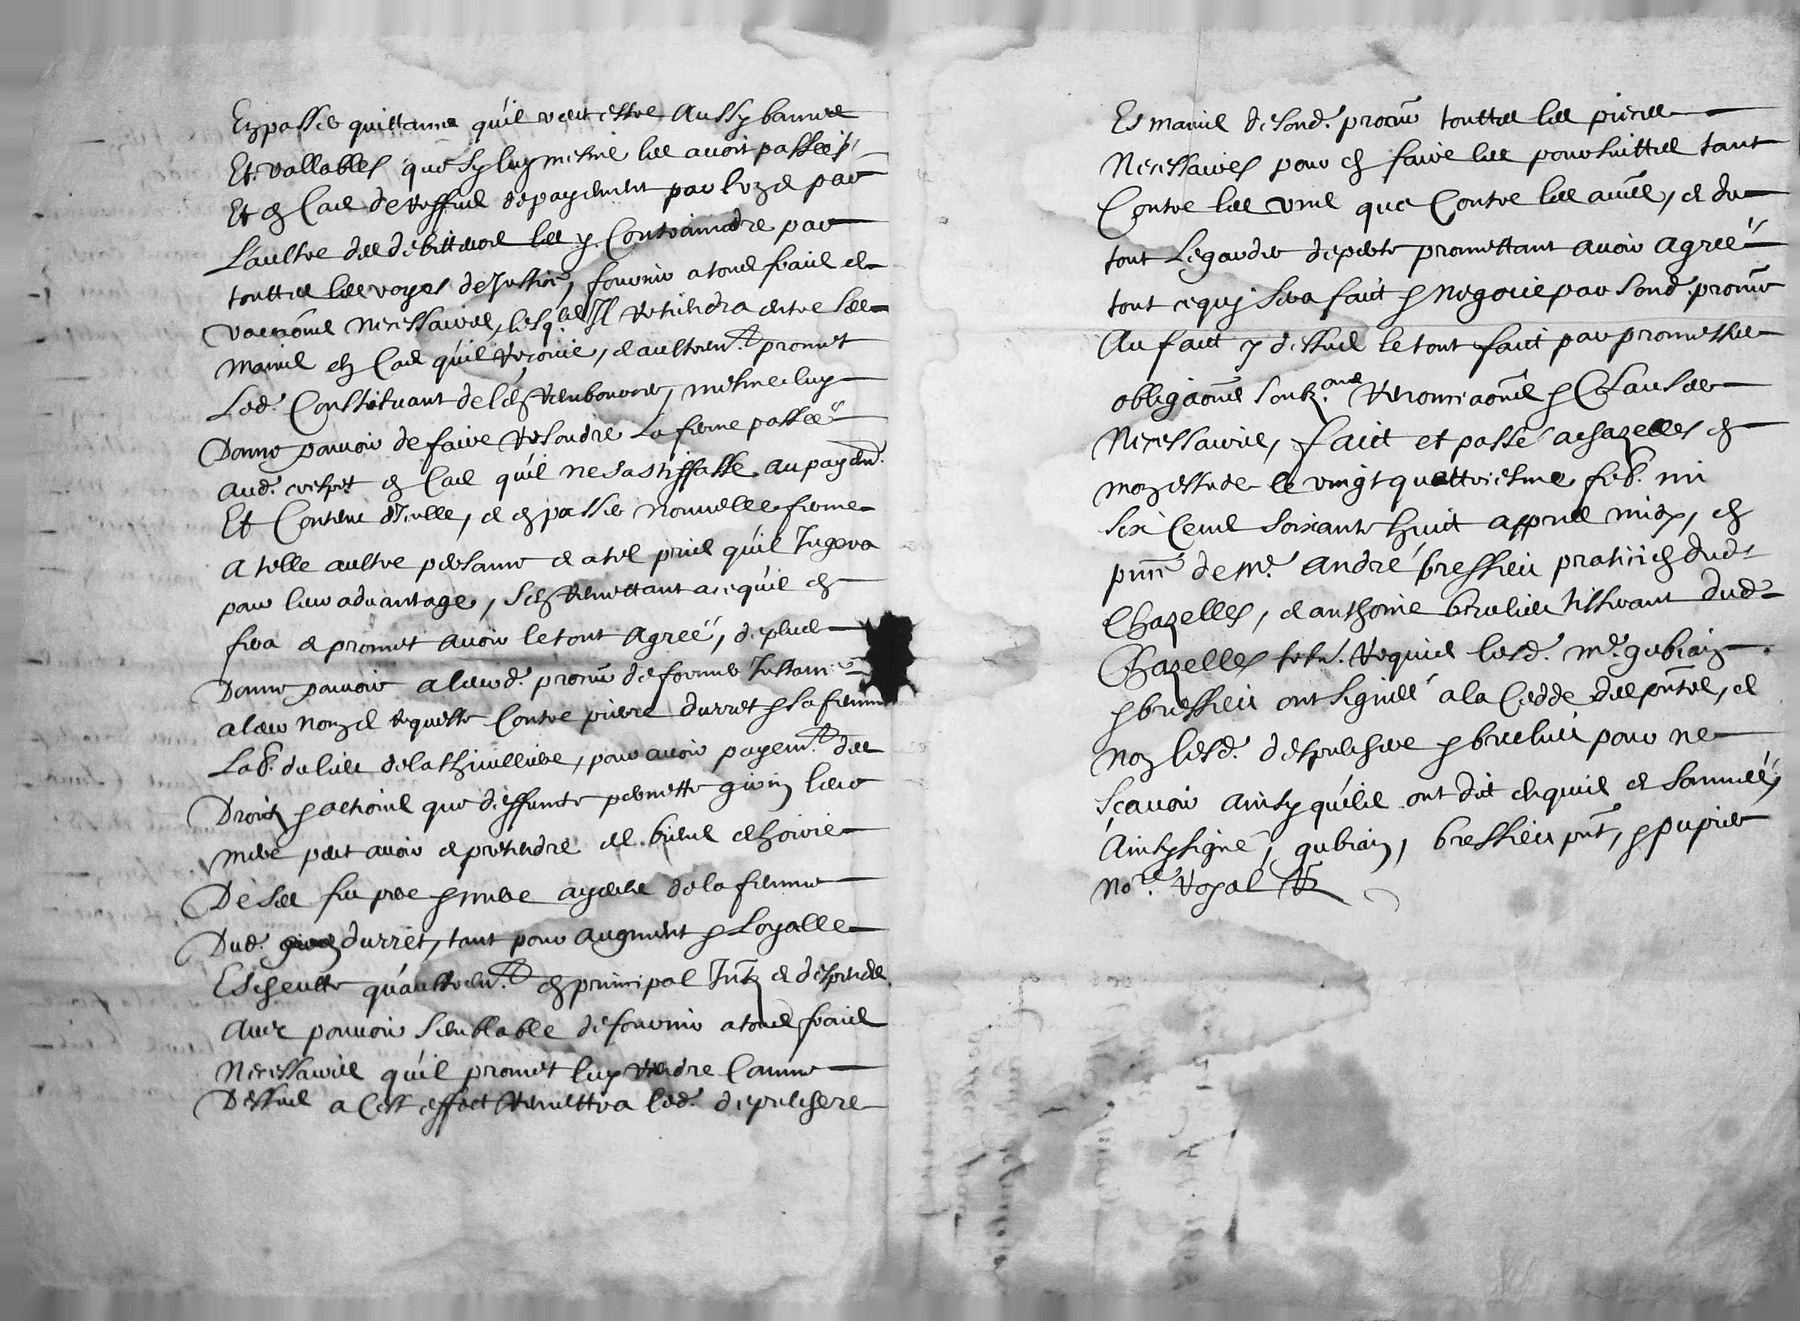 En passer quittance qu'il veut estre aussy bonnes
Et vallables que sy luy mesme les avoit passées,
Et en cas de reffus de payement par l'un et par
L'aultre des debitteurs les y contraindre par
touttes les voyes de Justice, fournir a tous frais et
vaccaõns necessaires, lesq.les Il retiendra entre ses
mains en cas qu'il reçoive, et aultrem.t promet
Led. Constituant de l'en rembourser, mesme luy
Donne pouvoir de faire resoudre la ferme passée
aud. en cas qu'il ne satisffasse au payem.t
Et contenu d'Icelle, et en passer nouvelle ferme
a telle aultre personne et a tel prix qu'il Jugera
pour leur advantage, s'en remettant a ce qu'il en
fera et promet avoir le tout agreé, de plus
Donne pouvoir a leurd. procur de former Instance
a leur nom et requeste contre pierre durret et sa femme
Lab. du lieu de la thiuilliere, pour avoir payem.t des
Droits et actions que deffuncte pernette givin leur
mere peut avoir et pretendre es biens et hoirie
De ses feu pere et mere ayeuls de la femme
Dud. durret, tant pour augment et Loyalle
Escheutte qu'aultrem.t en principal Intz et despendz
avec pouvoir semblable de fournir a tous frais
Necessaires qu'il promet luy rendre comme
Dessus a cest effect remettra led. depulchere
Es mains de sond. procur touttes les pieces
Necessaires pour en faire les poursuittes tant
Contre les uns que contre les autres, et du
tout Le garder de perte promettant avoir agreé
tout ce quy sera faict et negotié par sond. procur
Au faict y dessus le tout faict par promesses
obligaõns soubz.ons renonciaõns et Clauses
Necessaires, faict et passé a chazelles en
mon estude le vingt quattriesme feb. mi
six cens soixante huict appres midy, en
pnce de m.e andré bressieu praticien dud.
Chazelles, et anthoine brulieu tisserant dud.
Chazelles tesm. requis lesd. m.e gubian
et bressieu ont signée a la Cedde des pntes, et
non lesd. depulchere et brulieu pour ne
sçavoir ainsy qu'ils ont dit enquis et sommés
Ainsy signé, gubian, bressieu pnt, et pupier
no.re royal